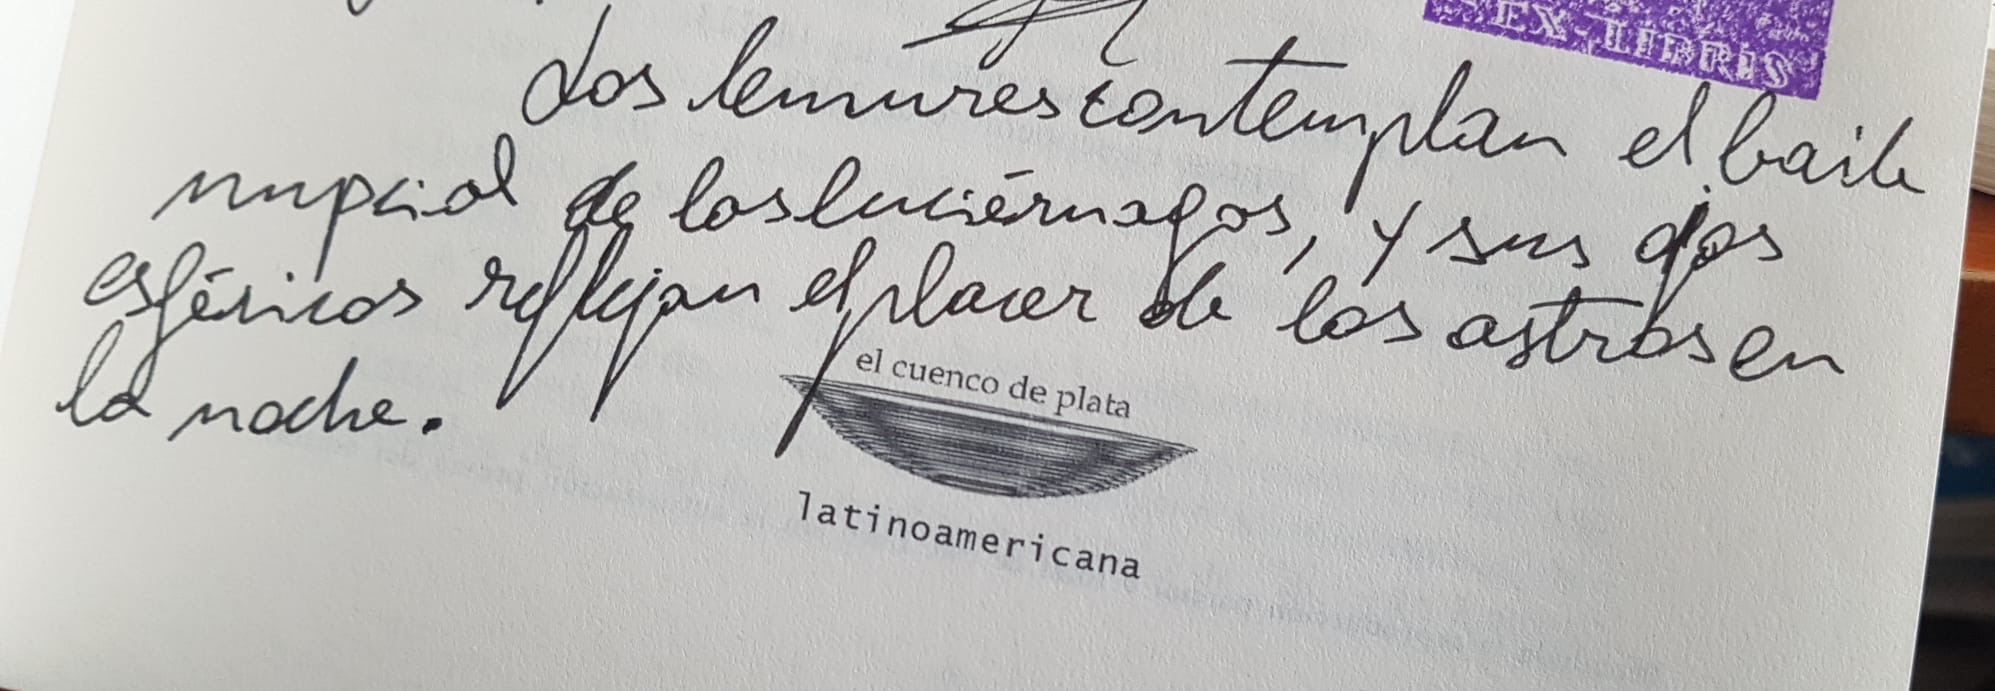 EX-LIBRIS
Los lemures contemplan el baile
nupcial de las luciérnagas, y sus ojos
esféricos reflejan el placer de los astros en
la noche.
el cuenco de plata
latinoamericana